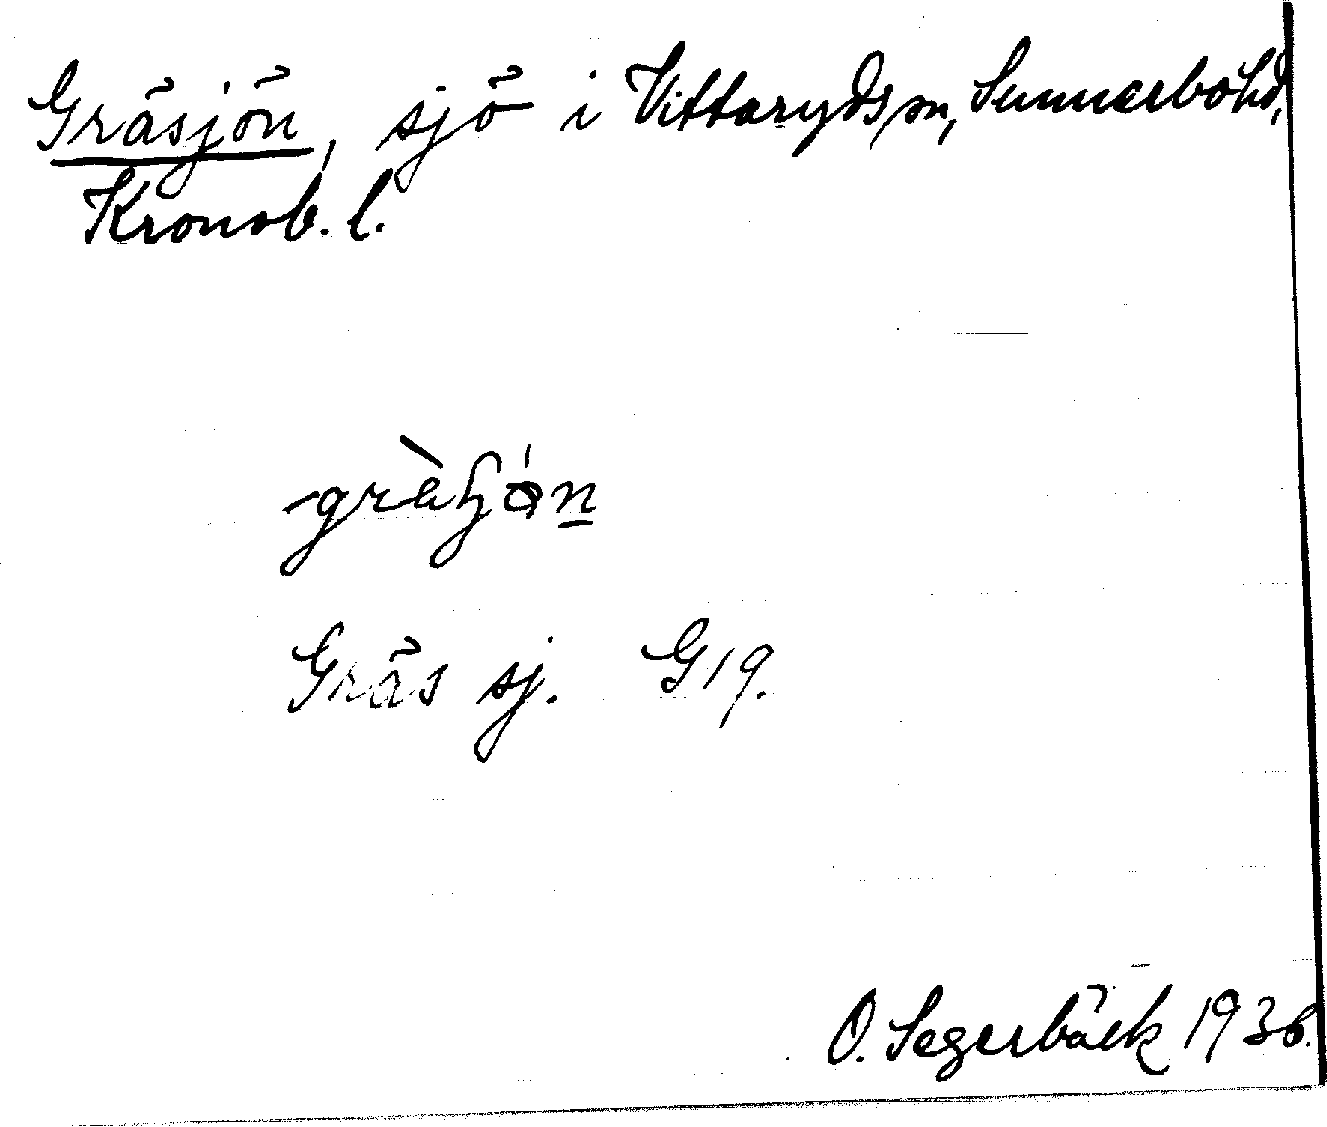 Gräsjön, sjö i Vittaryds sn, Sunnerbo hd,
Kronob. l.
Gräs sj. G19.
O. Segerbäck 1936.